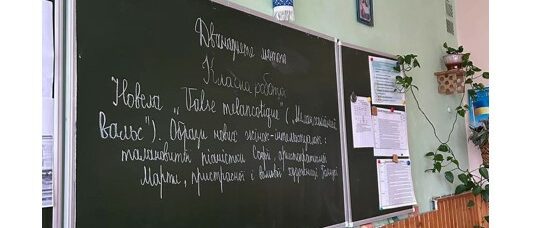 Дванадцяте лютого
Класна робота
Новела "Valse melancolique" ("Меланхолійний
вальс"). Образи нових жінок-інтелектуалок:
талановитої піаністки Софії, аристократичної
Марти, пристрасної і вольової художниці Ганнусі